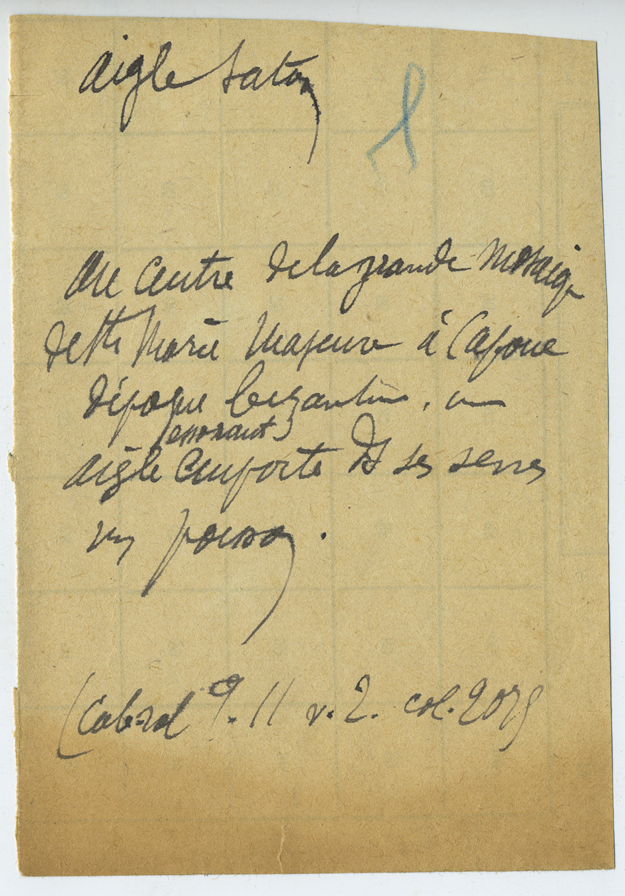 aigle Satan
Au Centre de la grande Mosaïque
de Ste Marie Majeure à Capoue
d'époque byzantine, un
(essorant)
aigle emporte ds ses serres
un poisson.
(Cabrol T. II v. 2. col. 2075